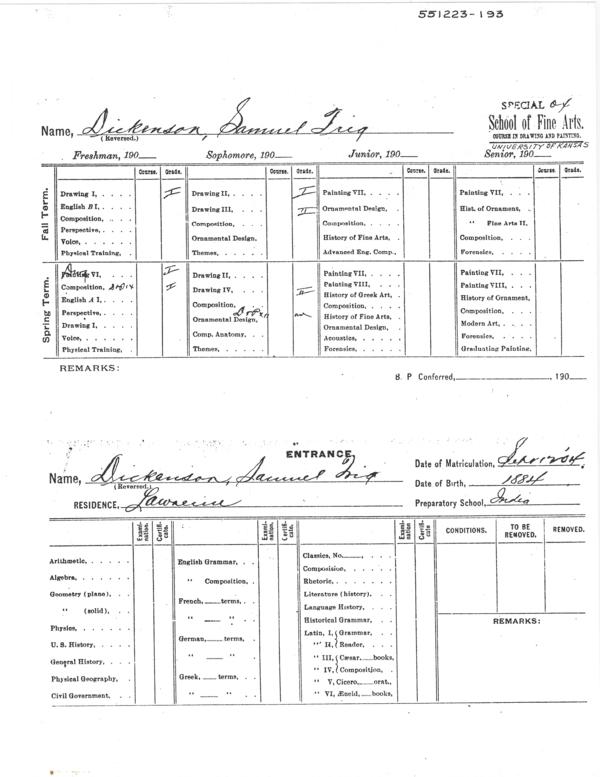 551223-193
SPECIAL 04
Name, Dickenson, Samuel Trig School of Fine Arts.
(Reversed.) COURSE IN DRAWING AND PAINTING.
UNIVERSITY OF KANSAS
Freshman, 190 Sophomore, 190 Junior, 190 Senior, 190
Course. Grade. Course. Grade. Course. Grade. Course. Grade.
Fall Term.
Drawing I, I Drawing II, I Painting VII, Painting VII,
English B I, Drawing III, II Ornamental Design, Hist. of Ornament,
Composition, Composition, Composition, " Fine Arts II,
Perspective, Ornamental Design, History of Fine Arts, Composition,
Voice, Themes, Advanced Eng. Comp., Forensics,
Physical Training,
Spring Term.
VI, I Drawing II, Painting VII, Painting VII,
Composition, I Drawing IV, II Painting VIII, Painting VIII,
English A I, Composition, History of Greek Art, History of Ornament,
Perspective, Ornamental Design, Composition, Composition,
Drawing I, Comp. Anatomy, History of Fine Arts, Modern Art,
Voice, Themes, Ornamental Design, Forensics,
Physical Training, Acoustics, Graduating Painting,
Forensics,
REMARKS:
B. P Conferred, , 190
ENTRANCE,
Name, Dickenson, Samuel Trig Date of Matriculation,
(Reversed.) Date of Birth, 1884
RESIDENCE, Lawrence Preparatory School, India
Examination. Certificate. Examination. Certificate. Examination. Certificate CONDITIONS. TO BE REMOVED. REMOVED.
Arithmetic, English Grammar, Classics, No.
Algebra, " Composition, Composition,
Geometry (plane), French, terms, Rhetoric,
" (solid), " " Literature (history),
Physics, German, terms, Language History,
U. S. History, " " Historical Grammar,
General History, Greek, terms, Latin, I, Grammar,
Physical Geography, " " " II, Reader,
Civil Government, " III, Cæsar, books,
" IV, Composition,
" V, Cicero, orat.,
" VI, Æneid, books,
REMARKS: